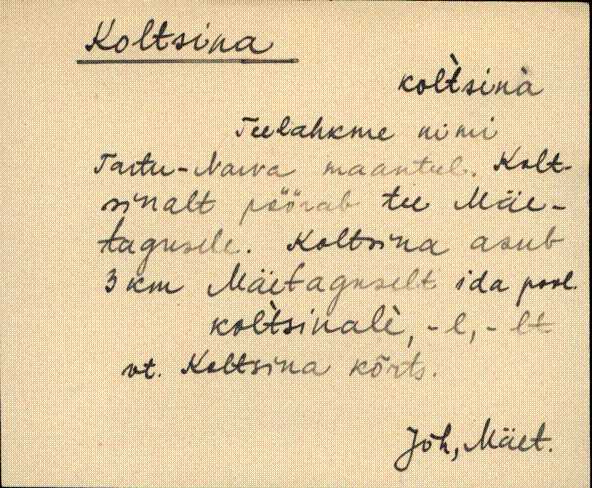 Koltsina
kol̀tsinà
Teelahkme nimi
Tartu-Narva maanteel. Kolt-
sinalt pöörab tee Mäe-
tagusele. Koltsina asub
3 km Mäetaguselt ida pool.
kol̀tsinalè, -l, -lt
vt. Koltsina kõrts.
Jõh, Mäet.